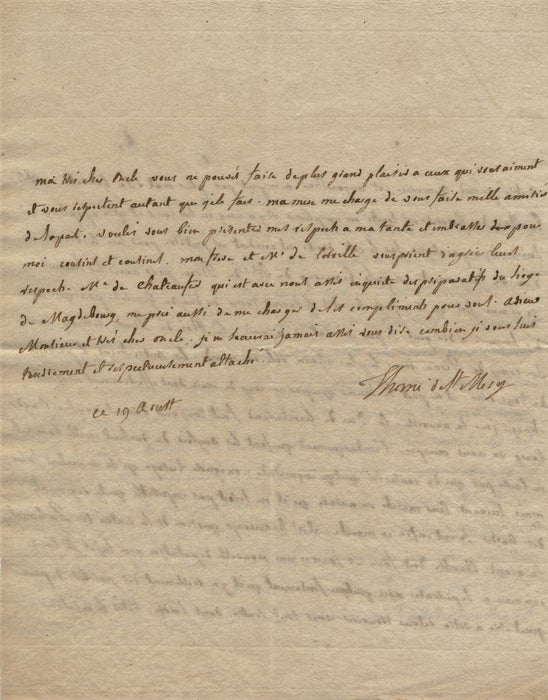 mon tres cher oncle vous ne pouvés faire de plus grand plaisir a ceux qui vous aiment
et vous respectent autant que je le fais. ma mere me charge de vous faire mille amitiés
de sa part. voulés vous bien presenter mes respects a ma tante et embrasser pour
moi cousins et cousines. mon frere et Mr de vous prient d'agréer leurs
respects. Mr de Chateaufer qui est avec nous assés inquiete des preparatifs du siege
de Magdebourg me prie aussi de me charger de ses compliments pour vous. adieu
Monsieur et tres cher oncle. je ne sçaurai jamais assés vous dire combien je vous suis
tendrement et respectueusement attaché.
Thomé de St Mesy
ce 19 Aoust